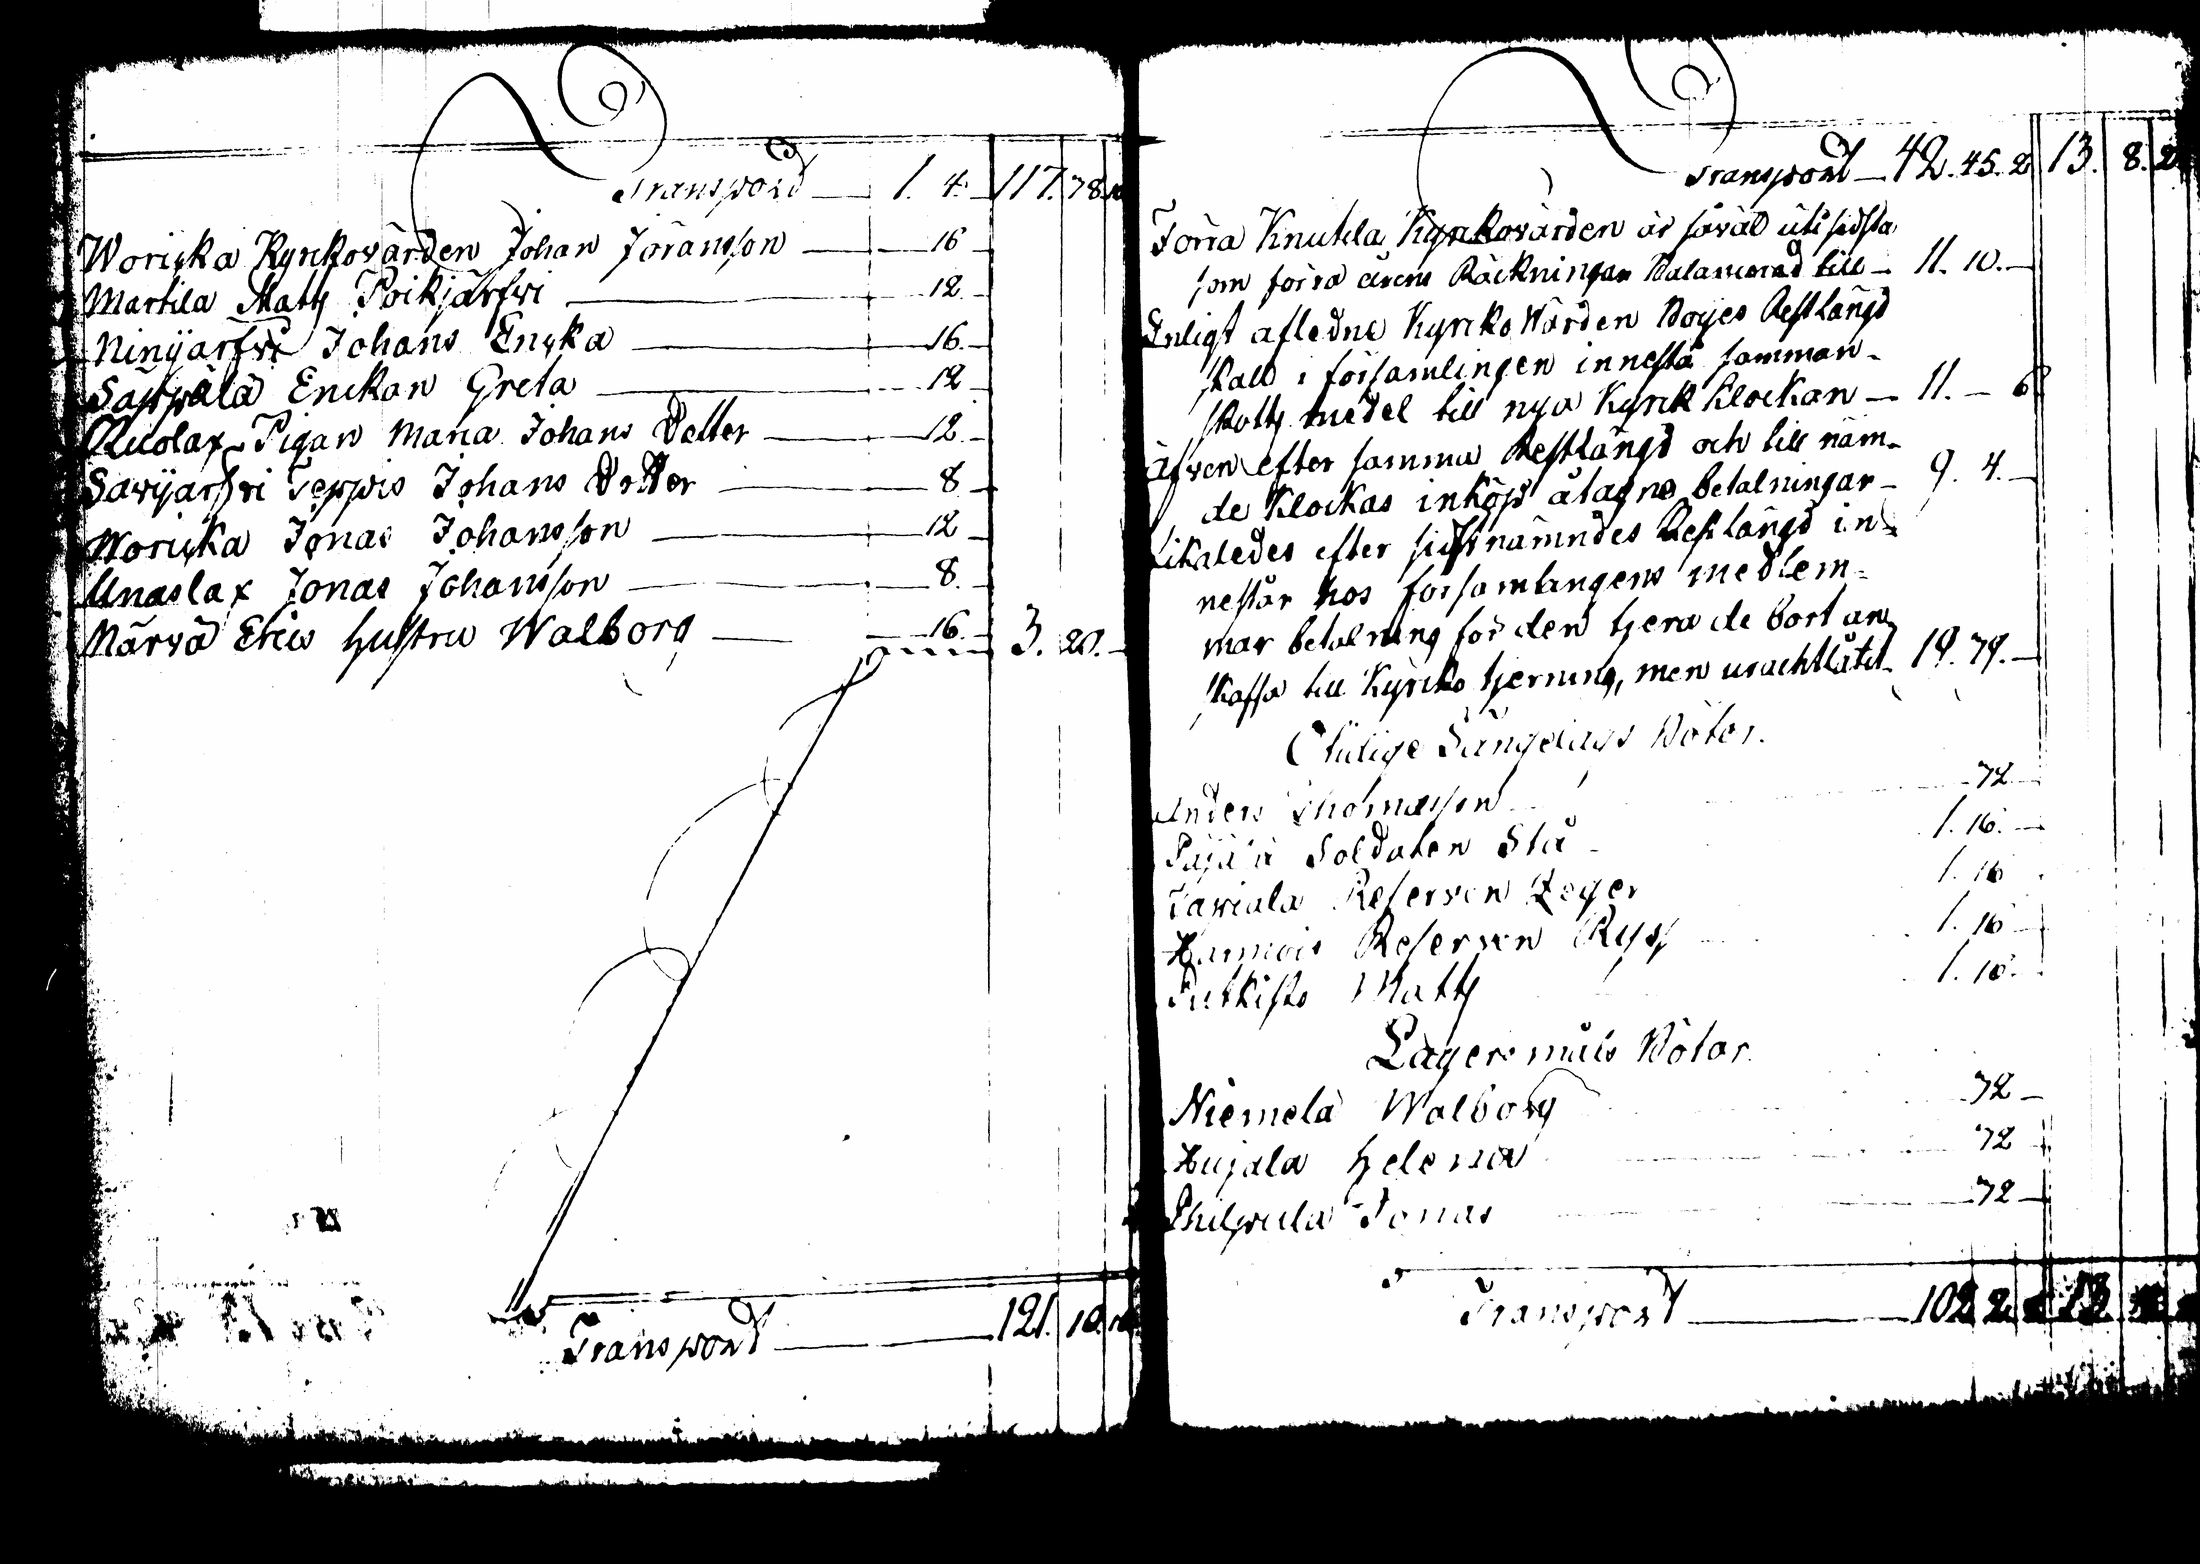 Transport — 1. 4. 117. 78.
Woricka Kyrckovärden Johan Jöransson — 16
Martila Matts Poikjärfwi — 12
Ninijärfwi Johans Encka — 16.
Enckan Greta — 12
Ruolax Pigan Maria Johans Dotter — 12
Sawijärfwi Johans Dotter — 8
Woricka Jonas Johansson — 12
Unaslax Jonas Johansson — 8.
Närwä Erics hustru Walborg — 16. 3. 20. —
Transport — 121. 10.
Transport — 42. 45. 2 13. 8. 2
Förra Knutila Kyrkovärden är såväl uti sidsta
som förra årens Räckningar Balancerad till — 11. 10. —
Enligt afledne Kyrcko Wärden Restlängd
skall i församlingen innestå samman-
skotts medel till nya Kyrck Klockan — 11. — 6
Äfven efter samma Restlängd och till näm-
de Klockas inköp åtagne betalningar — 9. 4. —
Likaledes efter sistnämndes Restlängd in-
nestår hos församlingens medlem-
mar betalning för den tjera de bort an-
skaffa till Kyrcko tjerning, men urachtlåtit — 19. 79. —
Otidige Sängelags Böter.
Anders Thomasson — 72
Soldaten Stå — 1. 16. —
Reserven — 1. 16
Reserven Ryss — 1. 16
Putkisto Matts — 1. 16.
Lägersmåls Böter.
Niemelä Walborg — 72 —
Hujala Helena — 72
Philpula Jonas — 72 —
Transport — 102 2